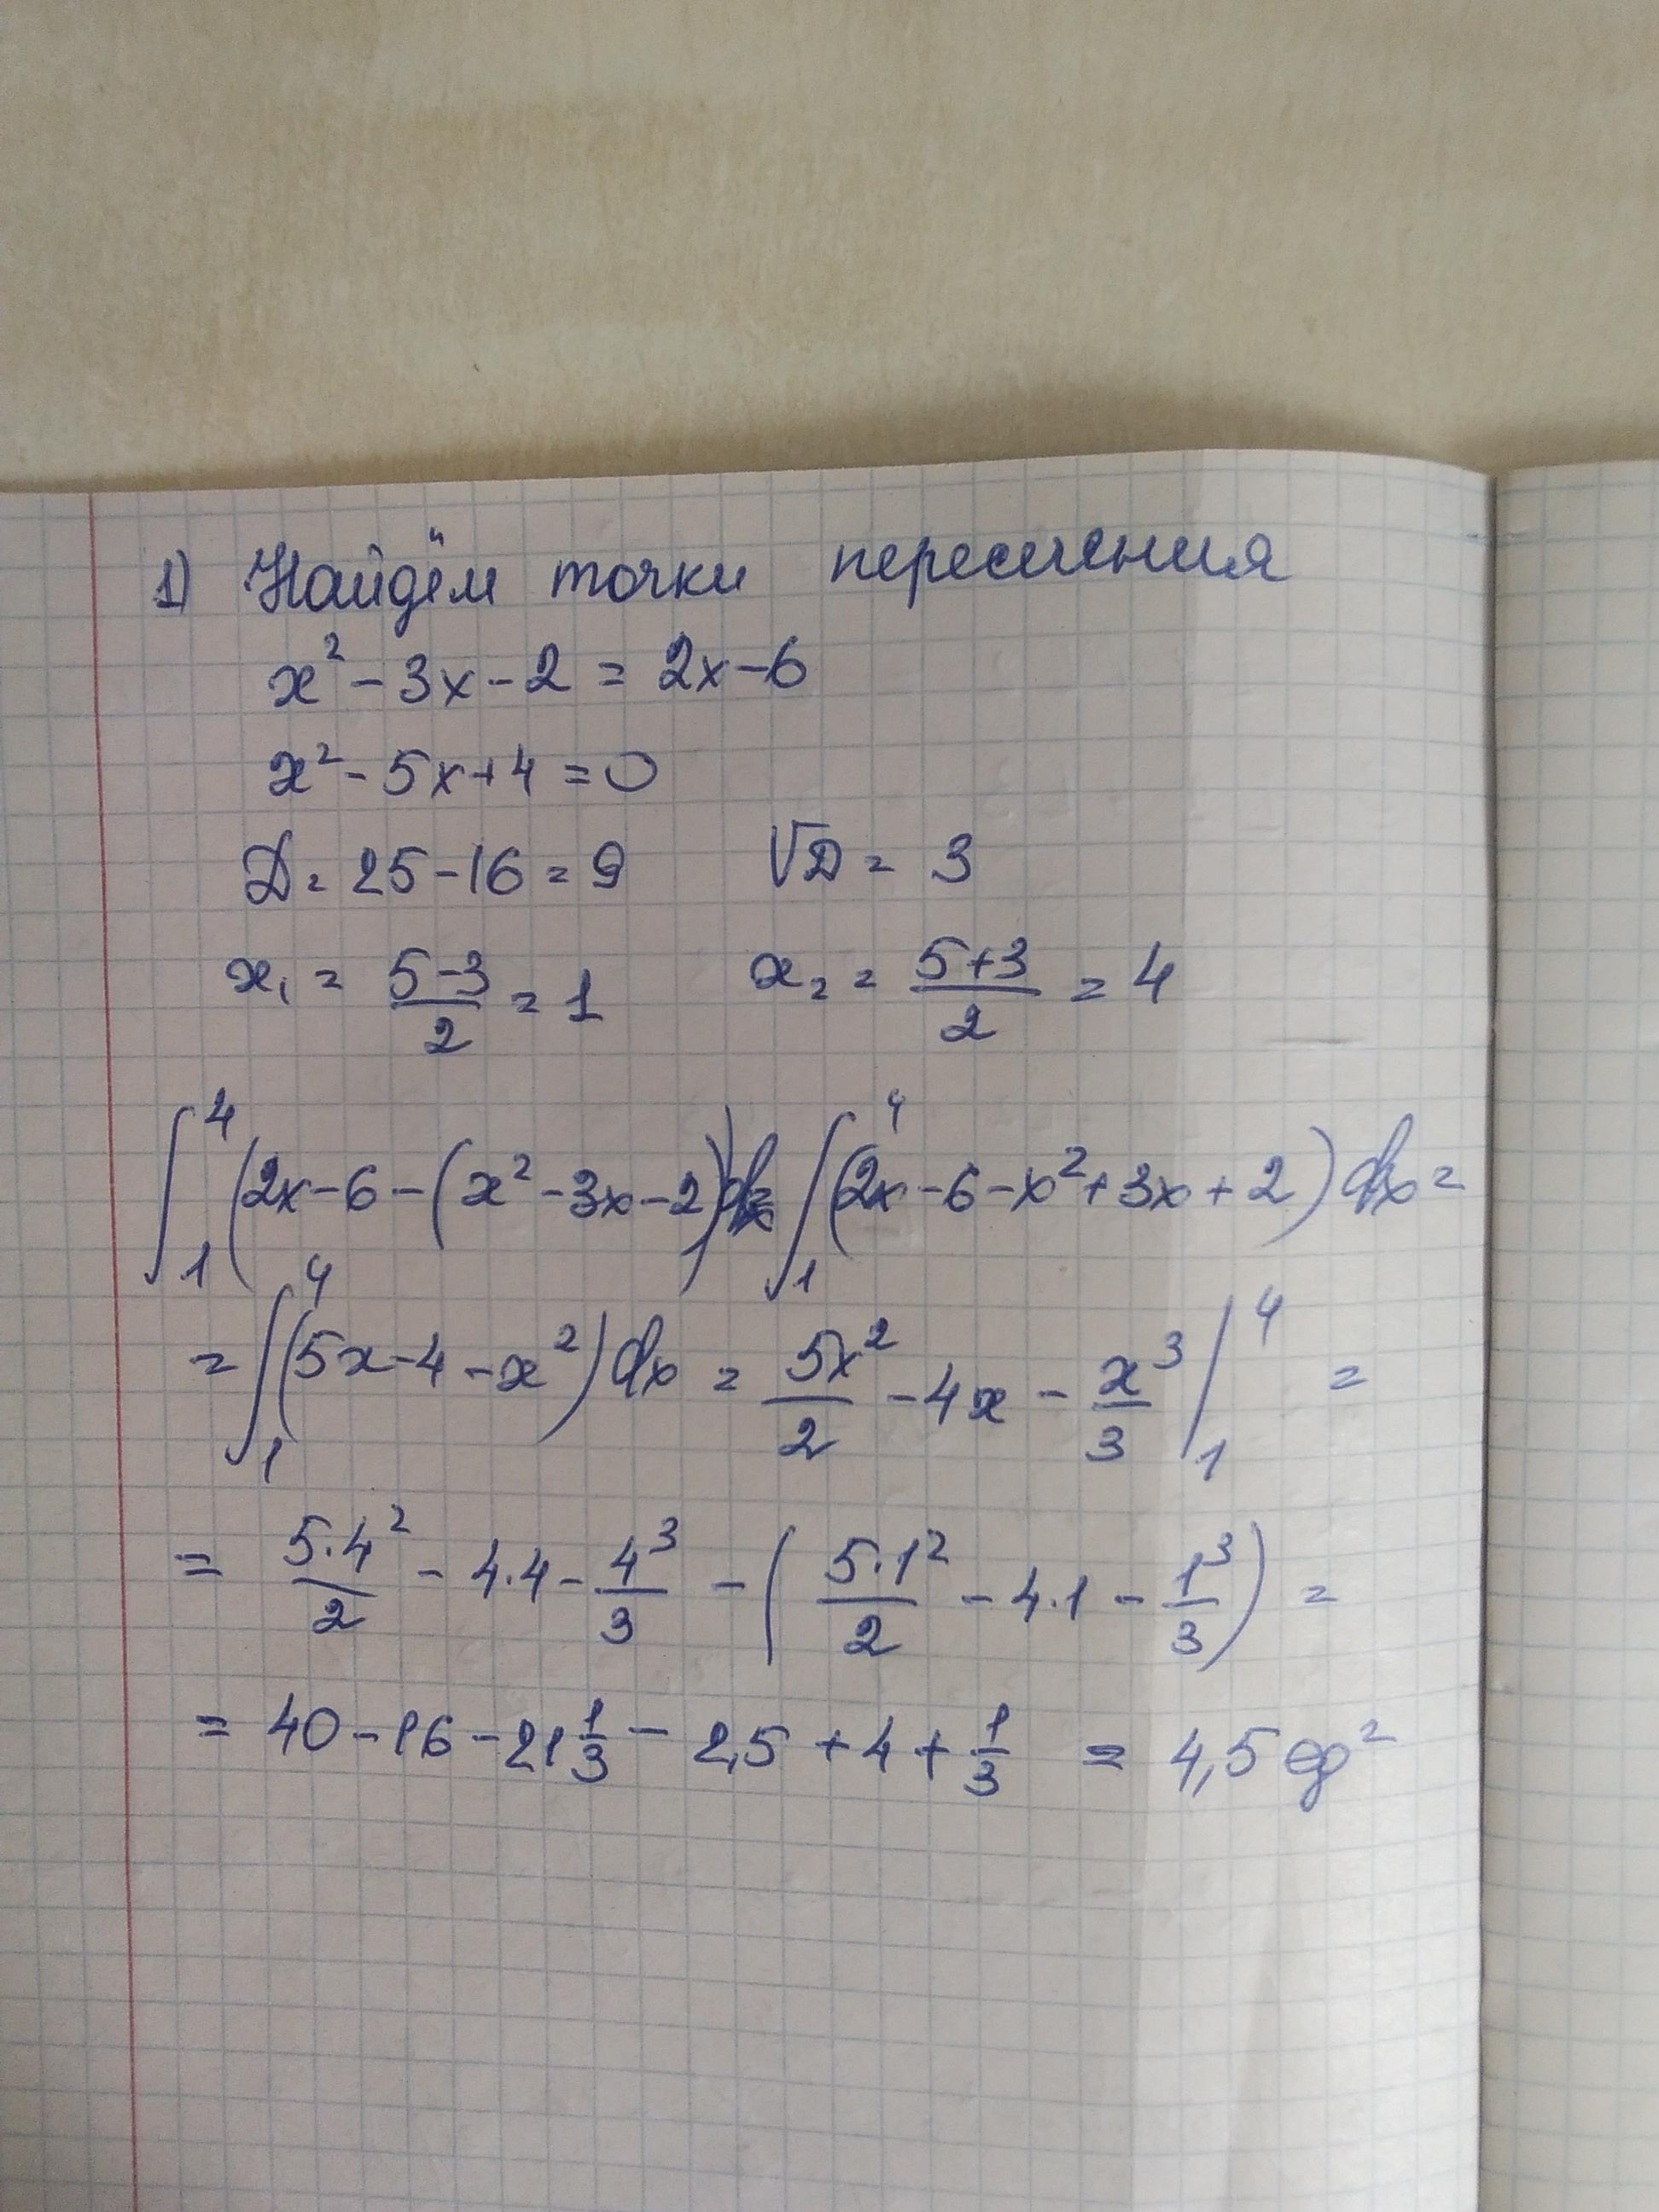 1) Найдём точки пересечения
x² - 3x - 2 = 2x - 6
x² - 5x + 4 = 0
D = 25 - 16 = 9 √D = 3
x₁ = (5-3)/2 = 1 x₂ = (5+3)/2 = 4
∫₁⁴ (2x - 6 - (x² - 3x - 2))dx = ∫₁⁴ (2x - 6 - x² + 3x + 2) dx =
= ∫₁⁴ (5x - 4 - x²) dx = 5x²/2 - 4x - x³/3 |₁⁴ =
= 5·4²/2 - 4·4 - 4³/3 - (5·1²/2 - 4·1 - 1³/3) =
= 40 - 16 - 21 1/3 - 2,5 + 4 + 1/3 = 4,5 ед²